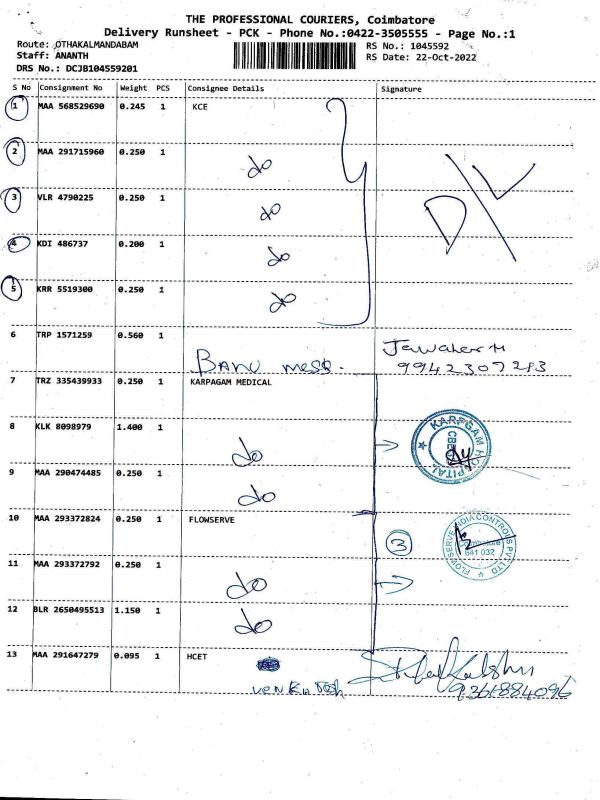 THE PROFESSIONAL COURIERS, Coimbatore
Delivery Runsheet - PCK - Phone No.:0422-3505555 - Page No.:1
Route: OTHAKALMANDABAM
RS No.: 1045592
Staff: ANANTH
RS Date: 22-Oct-2022
DRS No.: DCJB104559201
S No Consignment No Weight PCS Consignee Details Signature
1 MAA 568529690 0.245 1 KCE
2 MAA 291715960 0.250 1 do
3 VLR 4790225 0.250 1 do
D/L
4 KDI 486737 0.200 1 do
5 KRR 5519300 0.250 1 do
6 TRP 1571259 0.560 1 BANU mess. Jawaher M
9942307213
7 TRZ 335439933 0.250 1 KARPAGAM MEDICAL
8 KLK 8098979 1.400 1 do
KARPGAM HOSPITAL
9 MAA 290474485 0.250 1 do
10 MAA 293372824 0.250 1 FLOWSERVE
3
FLOWSERVE INDIA CONTROLS PVT LTD
Coimbatore
641 032
11 MAA 293372792 0.250 1 do
12 BLR 2650495513 1.150 1 do
13 MAA 291647279 0.095 1 HCET
venkatesh
9361884096